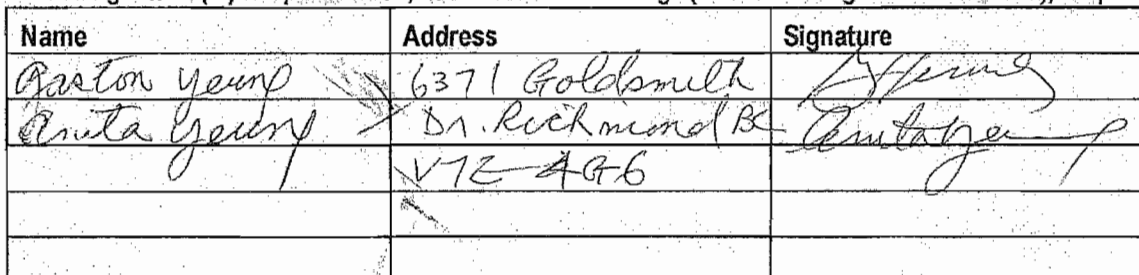 Name Address Signature
Gaston Yeung 6371 Goldsmith
Anita Yeung Dr. Richmond BC Anita Yeung
V7E 4G6